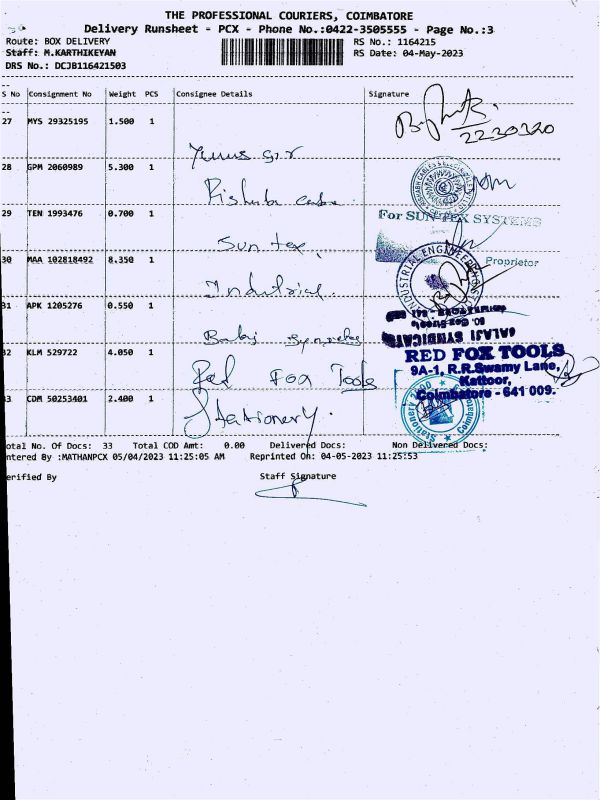 THE PROFESSIONAL COURIERS, COIMBATORE
Delivery Runsheet - PCX - Phone No.:0422-3505555 - Page No.:3
Route: BOX DELIVERY
RS No.: 1164215
Staff: M.KARTHIKEYAN
RS Date: 04-May-2023
DRS No.: DCJB116421503
S No Consignment No Weight PCS Consignee Details Signature
27 MYS 29325195 1.500 1
2230320
28 GPM 2060989 5.300 1
29 TEN 1993476 0.700 1
For SUN TEX SYSTEMS
Sun tex
Proprietor
30 MAA 102818492 8.350 1
Industrial
INDUSTRIAL ENGINEERING
31 APK 1205276 0.550 1
BALAJI SYNDICATE
32 KLM 529722 4.050 1
Red Fox Tools
RED FOX TOOLS
9A-1, R.R.Swamy Lane,
Kattoor,
Coimbatore - 641 009.
3 CDM 50253401 2.400 1
Stationery
Stationery 2000 Coimbatore
otal No. Of Docs: 33 Total COD Amt: 0.00 Delivered Docs: Non Delivered Docs:
ntered By :MATHANPCX 05/04/2023 11:25:05 AM Reprinted On: 04-05-2023 11:25:53
erified By Staff Signature